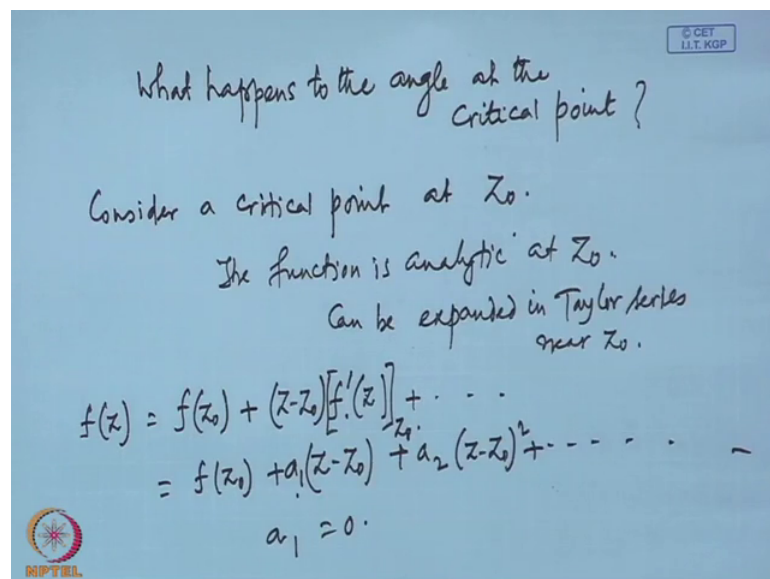 © CET
I.I.T. KGP
What happens to the angle at the
critical point ?
Consider a critical point at Z₀.
The function is analytic at Z₀.
Can be expanded in Taylor series
near Z₀.
f(z) = f(z₀) + (z-z₀)[f'(z)]_z₀ + · · ·
= f(z₀) + a₁(z-z₀) + a₂(z-z₀)² + - - - - -
a₁ = 0.
NPTEL